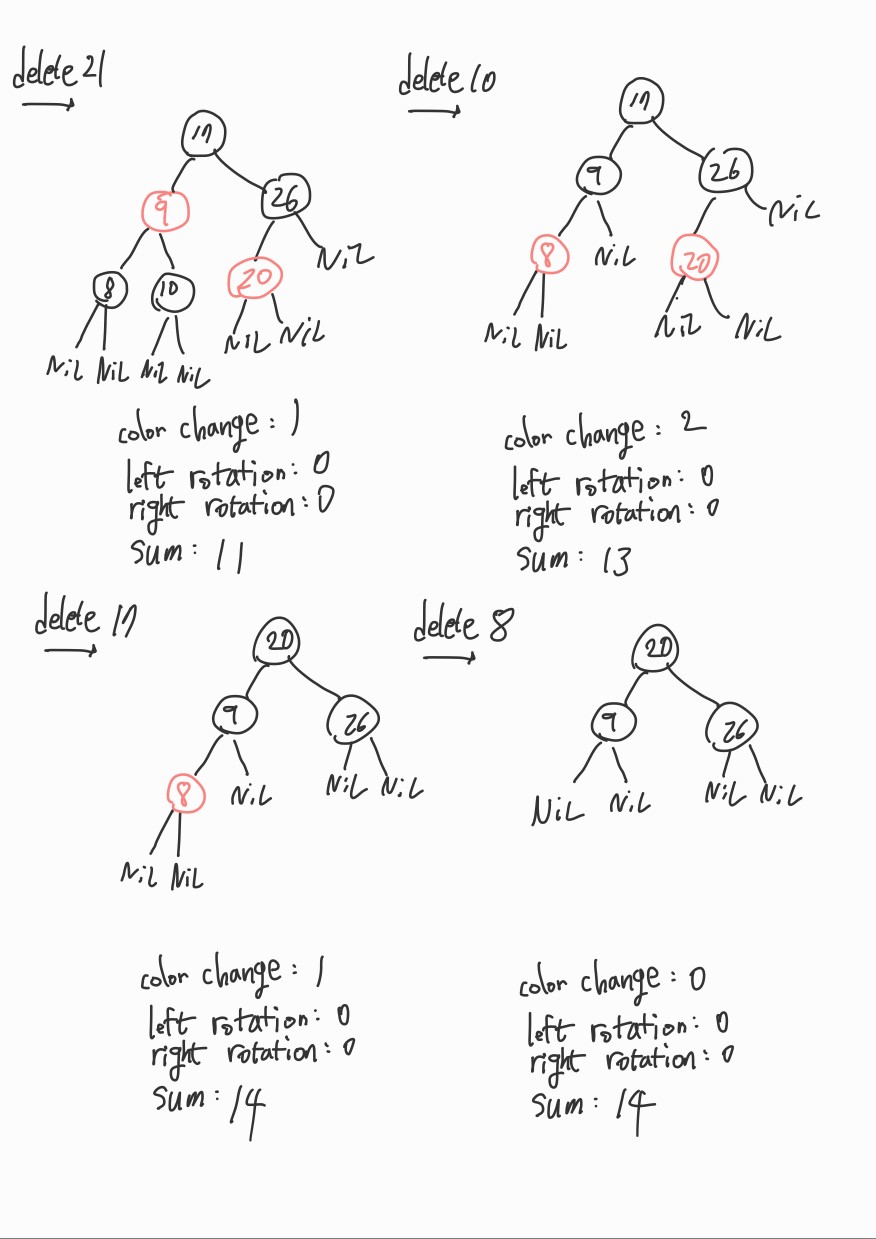 delete 21
17
9
26
8
10
20
NiL
NiL NiL NiL NiL
NiL NiL
color change : 1
left rotation : 0
right rotation : 0
sum : 11
delete 10
17
9
26
8
NiL
20
NiL
NiL NiL
NiL NiL
color change : 2
left rotation : 0
right rotation : 0
sum : 13
delete 17
20
9
26
8
NiL
NiL NiL
NiL NiL
color change : 1
left rotation : 0
right rotation : 0
sum : 14
delete 8
20
9
26
NiL NiL
NiL NiL
color change : 0
left rotation : 0
right rotation : 0
sum : 14